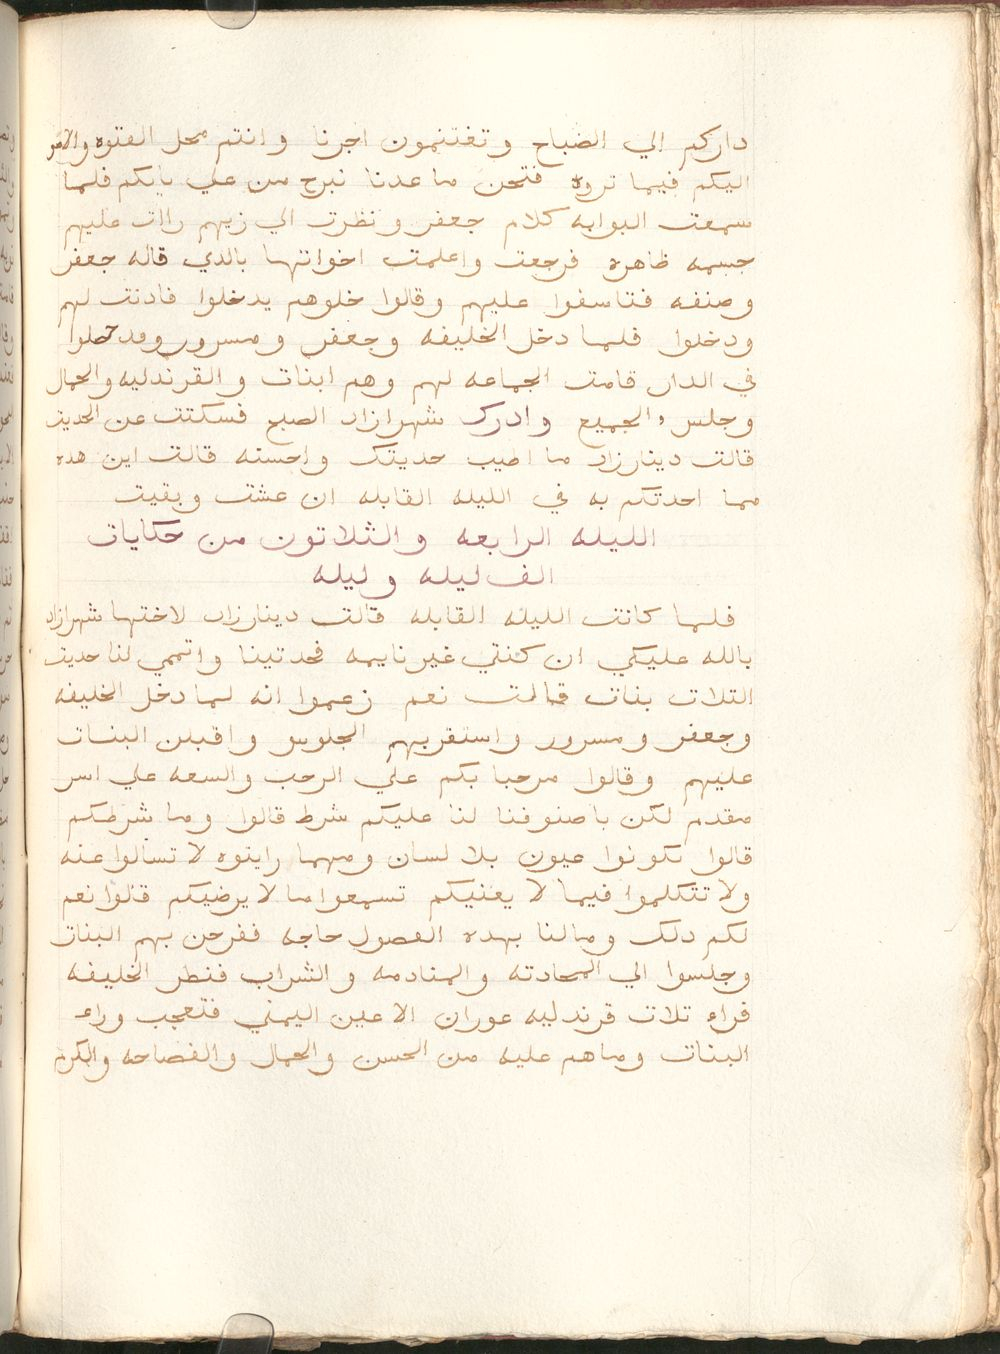 داركم إلي الضباح وتغتنمون اجرنا وانتم محل الفتوه والامر
اليكم فيما تروه فنحن ما عدنا نبرح من علي بابكم فلما
سمعت البوابه كلام جعفر ونظرت الي زيهم راات عليهم
جسمه ظاهره فرجعت واعلمت اخواتها بالدي قاله جعفر
وصنفه فتاسفوا عليهم وقالوا خلوهم يدخلوا فادنت لهم
ودخلوا فلما دخل الخليفه وجعفر ومسرور وقد حصلوا
في الدار قامت الجماعه لهم وهم ابنات والقرندليه والحمال
وجلس والجميع وادرك شهرازاد الصبح فسكتت عن الحديت
قالت دينارزاد ما اطيب حديتك واحسنه قالت اين هده
مما احدتكم به في الليله القابله ان عشت وبقيت
الليله الرابعه والثلاثون من حكايات
الف ليله وليله
فلما كانت الليله القابله قالت دينارزاد لاختها شهرازاد
بالله عليكي ان كنتي غير نايمه فحدتينا واتممي لنا حديت
التلات بنات قالت نعم زعموا انه لما دخل الخليفه
وجعفر ومسرور واستقر بهم الجلوس واقبلن البنات
عليهم وقالوا مرحبا بكم علي الرحب والسعه علي اسر
مقدم لكن يا ضنوفنا لنا عليكم شرط قالوا وما شرطكم
قالوا تكونوا عيون بلا لسان ومهما رايتوه لا تسالوا عنه
ولا تتكلموا فيما لا يعنيكم تسمعوا ما لا يرضيكم قالوا نعم
لكم دلك ومالنا بهده الفصول حاجه ففرحن بهم البنات
وجلسوا الي المحادته والمنادمه والشراب فنطر الخليفه
فراء تلات قرندليه عوران الاعين اليمني فتعجب وراء
البنات وما هم عليه من الحسن والجمال والفصاحه والكرم